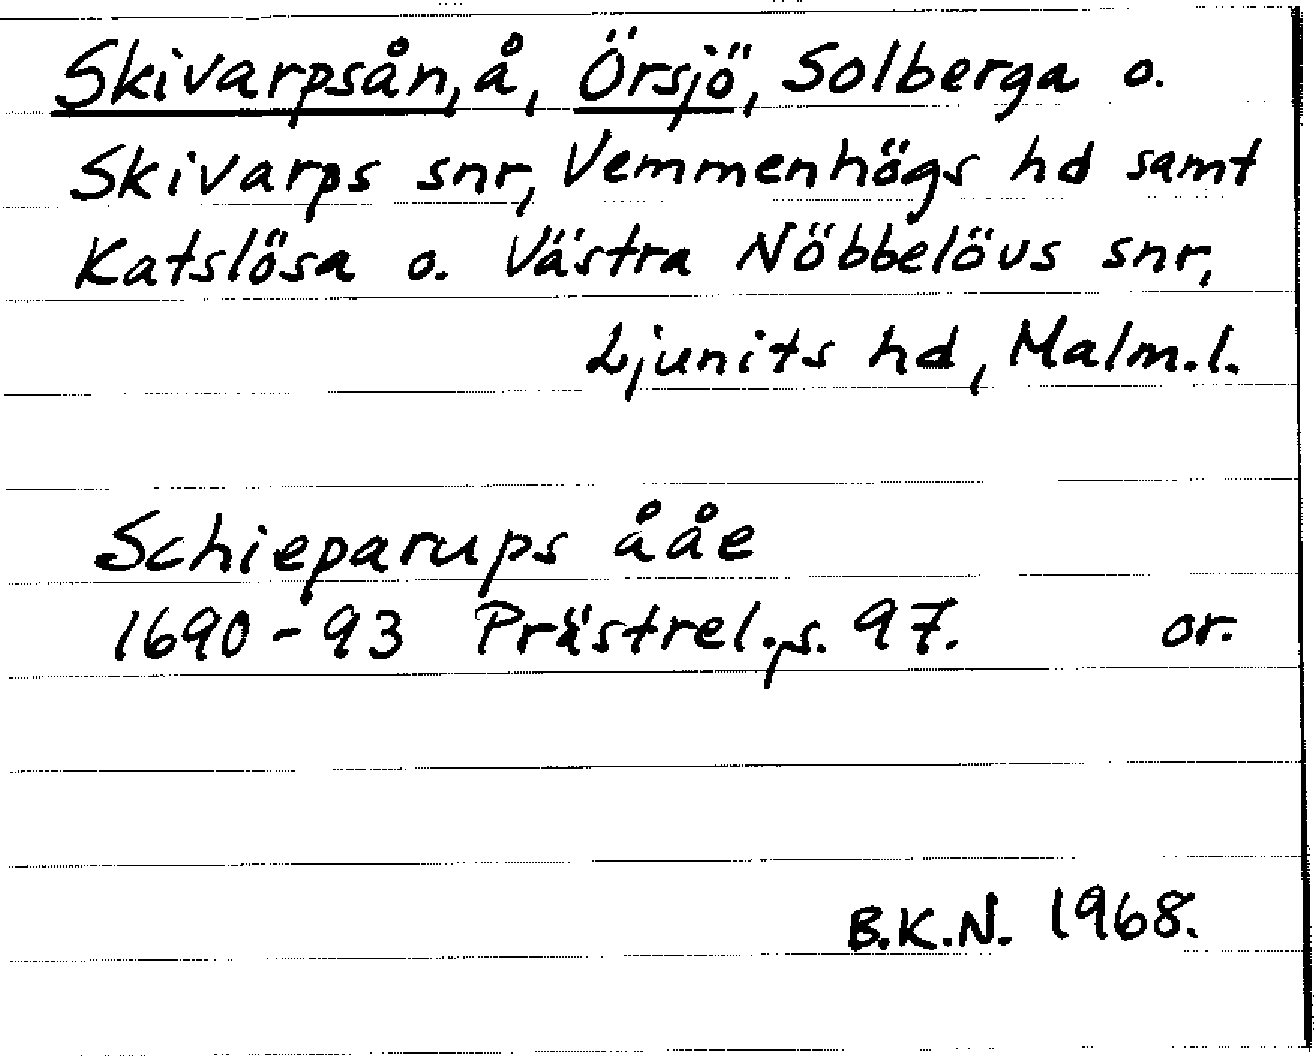 Skivarpsån, å, Örsjö, Solberga o.
Skivarps snr, Vemmenhögs hd samt
Katslösa o. Västra Nöbbelövs snr,
Ljunits hd, Malm.l.
Schieparups ååe
1690-93 Prästrel.s. 97. or.
B.K.N. 1968.